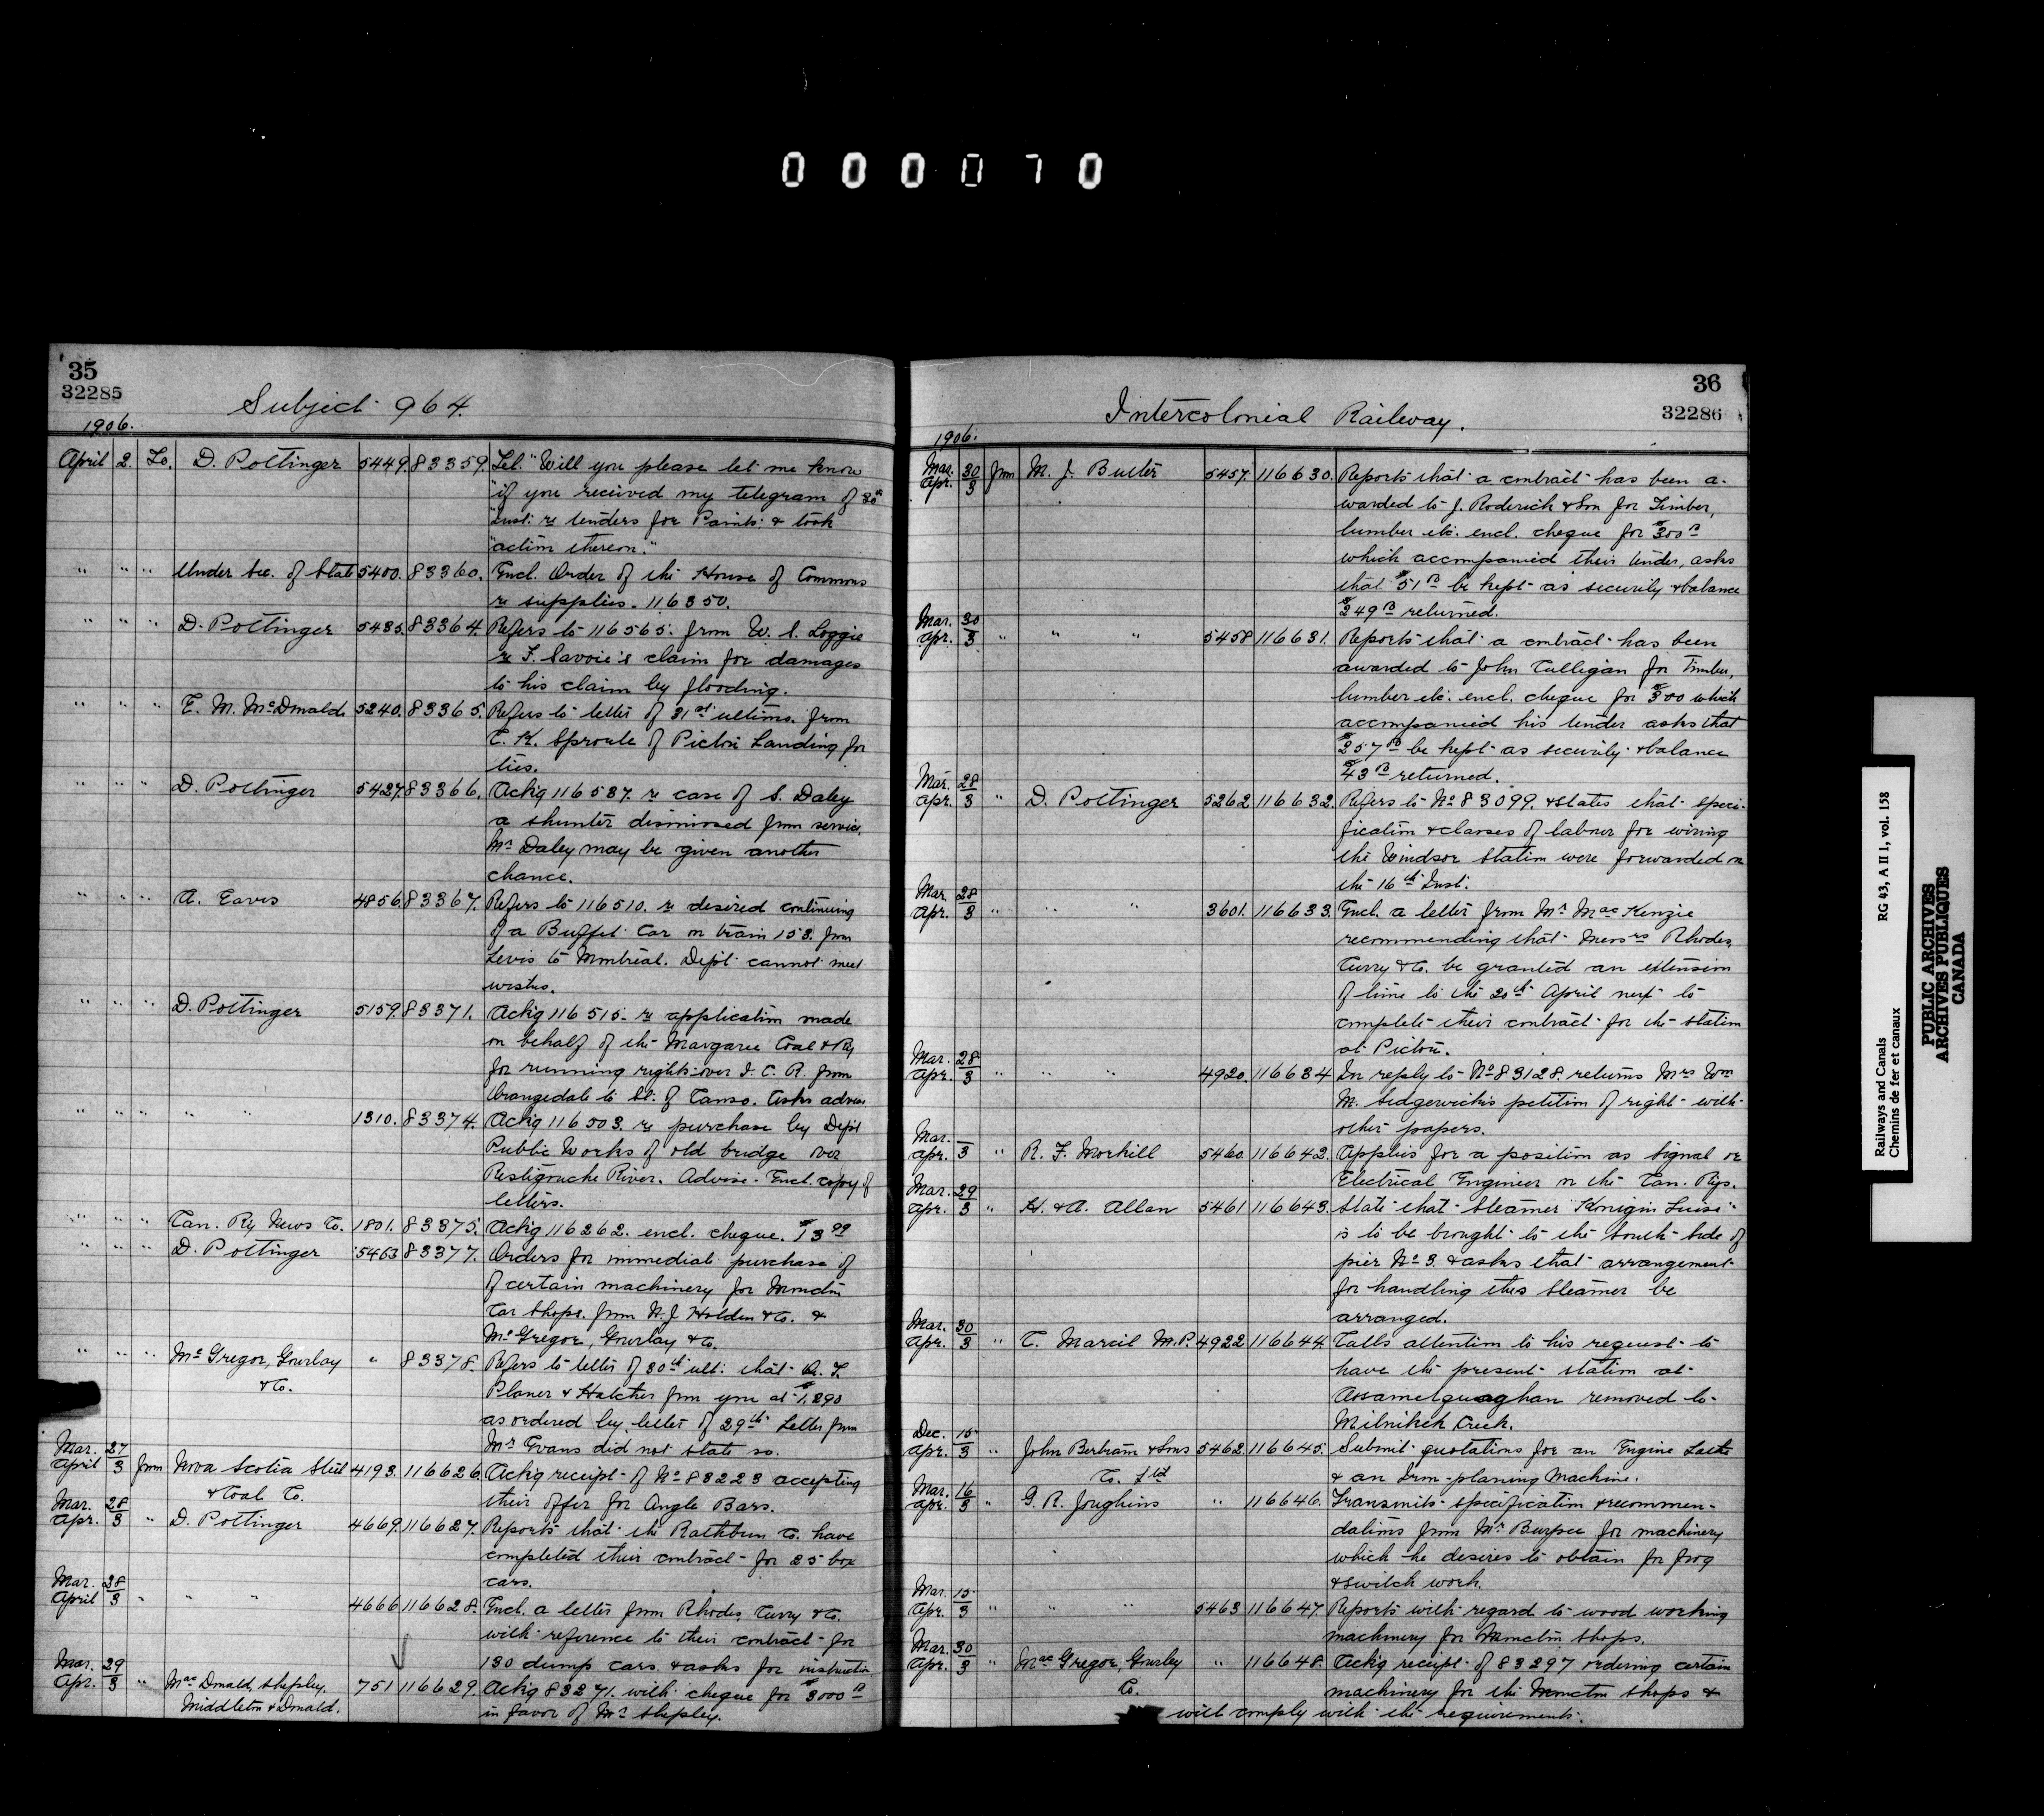 000070
35
32285
Subject 964.
1906.
April 2 To. D. Pottinger 5449. 83359. Tel. "Will you please let me know
"if you received my telegram of 30th
"inst. re tenders for Paints & took
"action thereon."
" " " Under Sec. of State 5400. 83360. Encl. Order of the House of Commons
re supplies. 116350.
" " " D. Pottinger 5435. 83364. Refers to 116565. from W. S. Loggie
re F. Savoie's claim for damages
to his claim by flooding.
" " " E. M. McDonald 5240. 83365. Refers to letter of 31st ultimo. from
C. K. Sproule of Pictou Landing for
ties.
" " " D. Pottinger 5427. 83366. Ackg 116537. re case of S. Daley
a shunter dismissed from service.
Mr Daley may be given another
chance.
" " " A. Eaves 4856. 83367. Refers to 116510. re desired continuing
of a Buffet Car on train 153. from
Levis to Montreal. Dept cannot meet
wishes.
" " " D. Pottinger 5159. 83371. Ackg 116515. re application made
on behalf of the Margaree Coal & Ry
for running rights over I. C. R. from
Orangedale to St. of Canso. Asks advise
" " " " " 1310. 83374. Ackg 116503. re purchase by Dept
Public Works of old bridge over
Restigouche River. Advise. Encl. copy of
letters.
" " " Can. Ry News Co. 1801. 83375. Ackg 116262. encl. cheque. $13 99
" " " D. Pottinger 5463 83377. Orders for immediate purchase of
of certain machinery for Moncton
Car Shops. from N. J. Holden & Co. &
McGregor, Gourlay & Co.
" " " McGregor, Gourlay " 83378. Refers to letter of 30th ult. that
& Co.
Planer & Hatcher from you at $1,290
as ordered by letter of 29th Letter from
Mr Evans did not state so.
Mar. 27
April 3 from Nova Scotia Steel 4193. 116626. Ackg receipt of No 83223 accepting
& Coal Co. their offer for Angle Bars.
Mar. 28
Apr. 3 " D. Pottinger 4669. 116627. Reports that the Rathbun Co. have
completed their contract for 25 box
cars.
Mar. 28
April 3 " " " 4666 116628. Encl. a letter from Rhodes, Curry & Co.
with reference to their contract for
130 dump cars & asks for instruction
Mar. 29
Apr. 3 " MacDonald, Shepley, 751 116629. Ackg 83271. with cheque for $3000 00
Middleton & Donald. in favor of Mr Shepley.
36
32286
Intercolonial Railway.
1906.
Mar. 30
Apr. 3 from M. J. Butler 5457. 116630. Reports that a contract has been a-
warded to J. Roderick & Son for Timber,
lumber etc. encl. cheque for $300 00
which accompanied their tender, asks
that $51 00 be kept as security & balance
$249 00 returned.
Mar. 30
Apr. 3 " " " 5458 116631. Reports that a contract has been
awarded to John Culligan for Timber,
lumber etc. encl. cheque for $300 which
accompanied his tender asks that
$257 00 be kept as security & balance
$43 00 returned.
Mar. 28
Apr. 3 " D. Pottinger 5262 116632. Refers to No 83099. & states that speci-
fication & classes of labour for wiring
the Windsor Station were forwarded on
the 16th Inst.
Mar. 28
Apr. 3 " " " 3601. 116633. Encl. a letter from Mr MacKenzie
recommending that Messrs Rhodes,
Curry & Co. be granted an extension
of time to the 20th April next to
complete their contract for the station
at Pictou.
Mar. 28
Apr. 3 " " " 4920. 116634 In reply to No 83128. returns Mrs Wm
M. Sedgewick's petition of right with
other papers.
Mar. —
Apr. 3 " R. F. Morkill 5460. 116642. Applies for a position as Signal or
Electrical Engineer on the Can. Rys.
Mar. 29
Apr. 3 " H. & A. Allan 5461 116643. State that Steamer "Konigin Luise"
is to be brought to the South side of
pier No 3. & asks that arrangement
for handling this steamer be
arranged.
Mar. 30
Apr. 3 " C. Marcil M.P. 4922 116644. Calls attention to his request to
have the present station at
Assametquaghan removed to
Milnikek Creek.
Dec. 15
Apr. 3 " John Bertram & Sons 5462. 116645. Submit quotations for an Engine Lathe
Co. Ltd & an Iron-planing Machine.
Mar. 16
Apr. 3 " G. R. Joughins " 116646. Transmits specification & recommen-
dations from Mr Burpee for machinery
which he desires to obtain for frog
& switch work.
Mar. 15
Apr. 3 " " " 5463 116647. Reports with regard to wood working
machinery for Moncton shops.
Mar. 30
Apr. 3 " MacGregor, Gourlay " 116648. Ackg receipt of 83297 ordering certain
Co. machinery for the Moncton shops &
will comply with the requirements.
Railways and Canals
Chemins de fer et canaux
RG 43, A II 1, vol. 158
PUBLIC ARCHIVES
ARCHIVES PUBLIQUES
CANADA